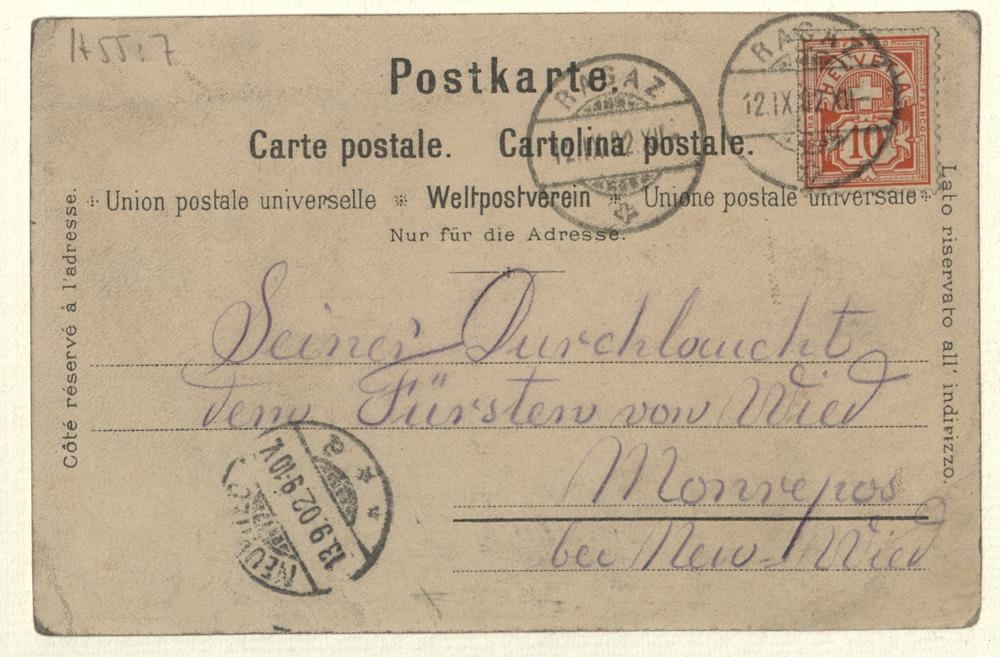 H 55:7
Postkarte.
Carte postale. Cartolina postale.
Union postale universelle * Weltpostverein * Unione postale universale
Nur für die Adresse.
Côté réservé à l'adresse.
Lato riservato all' indirizzo.
RAGAZ
12.IX.02.XII
RAGAZ
12.IX.02.XII
HELVETIA
FRANCO
10
Seiner Durchlaucht
dem Fürsten von Wied
Monrepos
bei Neu-Wied
13.9.02.9-10V.